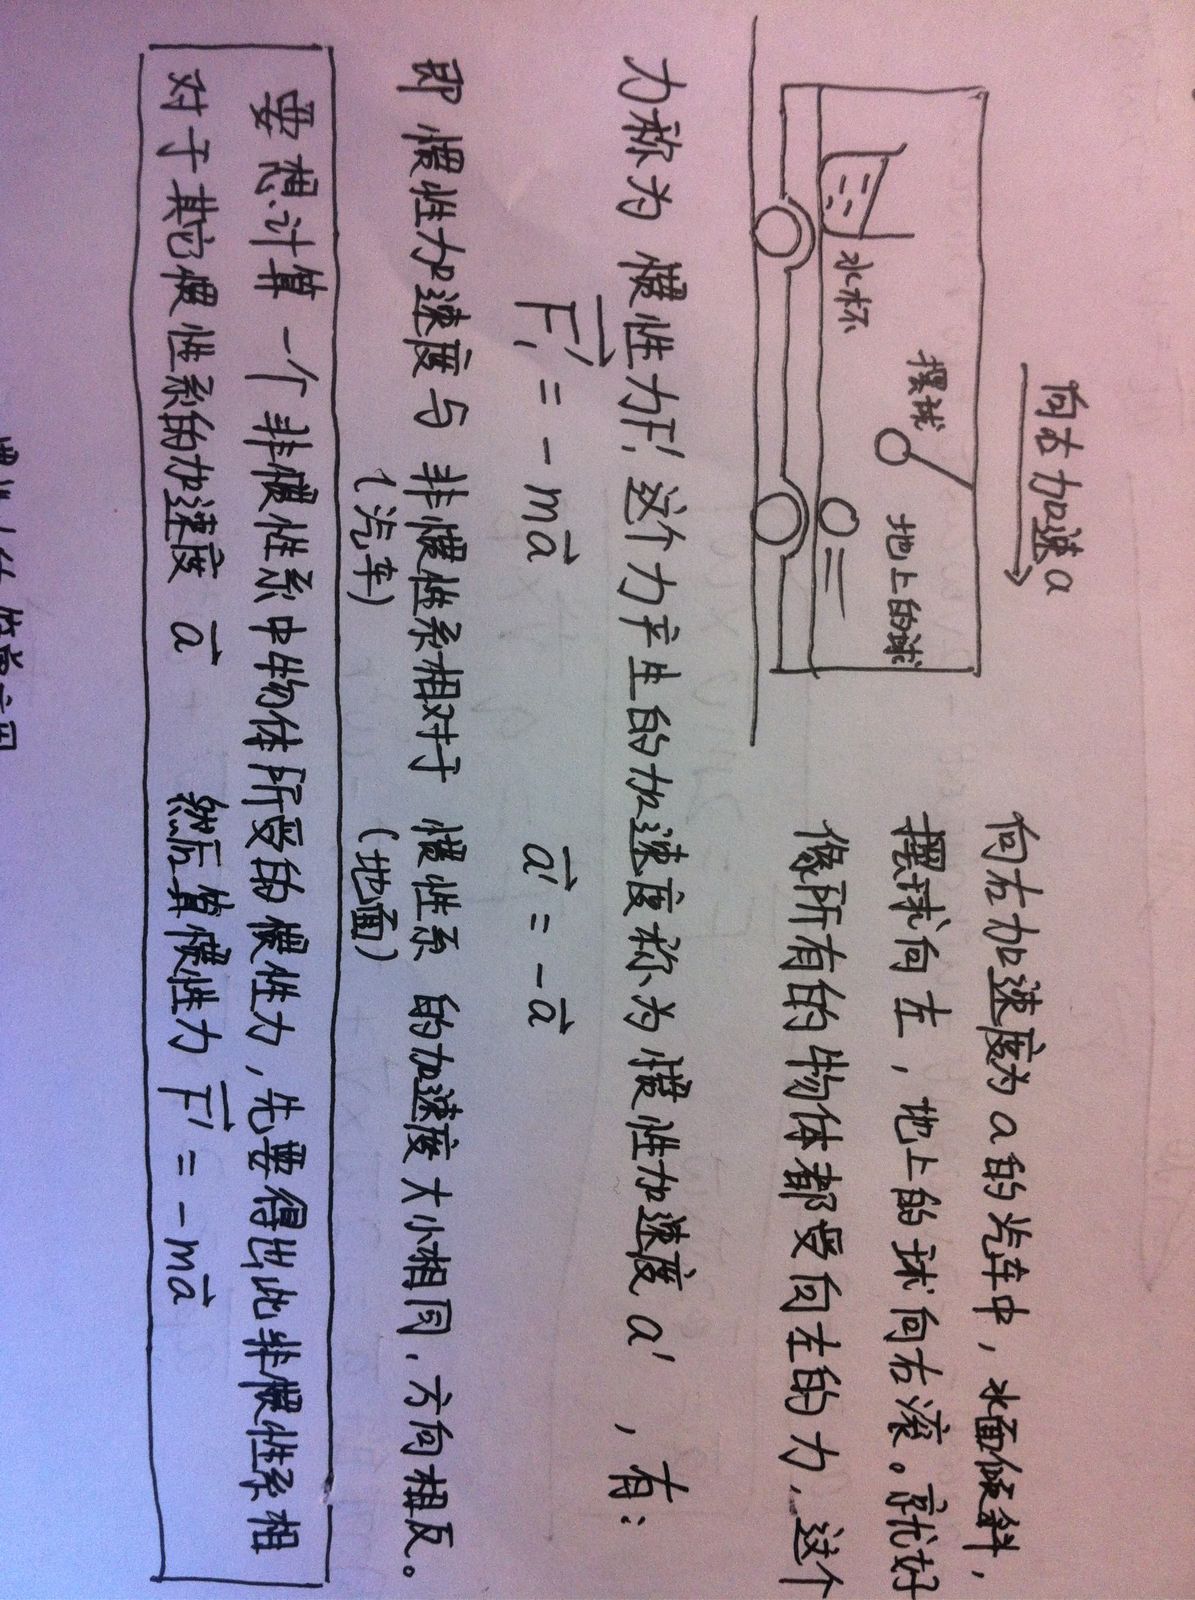 向右加速a
摆球
地上的球
水杯
向右加速度为a的汽车中，水面倾斜，
摆球向左，地上的球向右滚。就好
像所有的物体都受向左的力，这个
力称为 惯性力F'，这个力产生的加速度称为惯性加速度a'，有：
F₁' = -ma a' = -a
即 惯性加速度与 非惯性系相对于 惯性系 的加速度大小相同，方向相反。
（汽车） （地面）
要想计算一个非惯性系中物体所受的惯性力，先要得出此非惯性系相
对于其它惯性系的加速度 a 然后算惯性力 F' = -ma